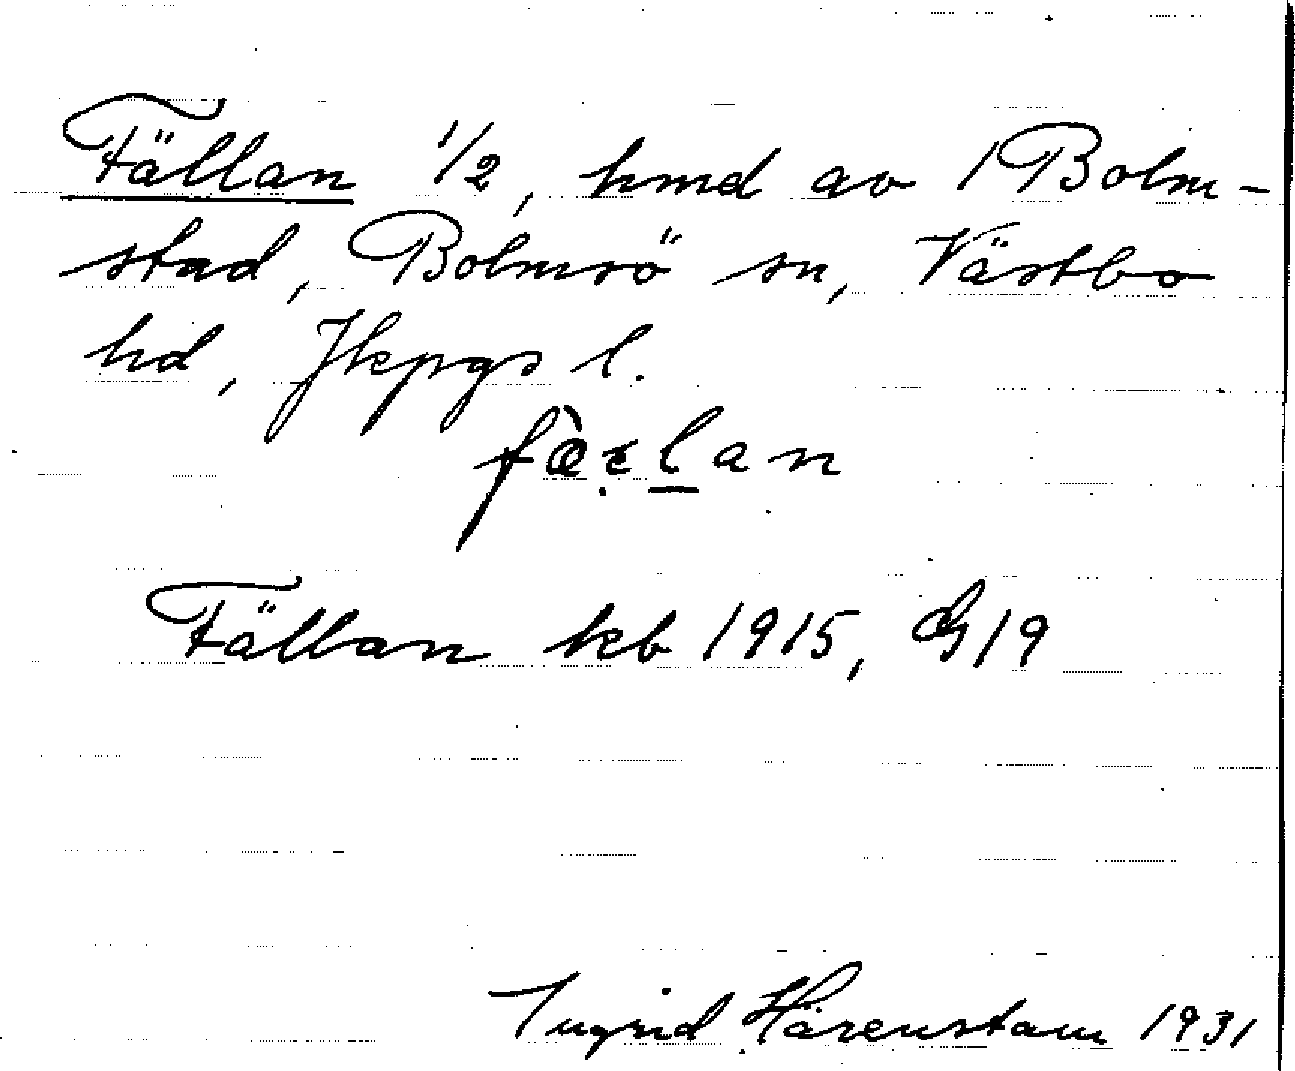 Fällan 1/2, hmd av 1 Bolm-
stad, Bolmsö sn, Västbo
hd, Jkpgs l.
Fällan kb 1915, G 19
Ingrid Härenstam 1931